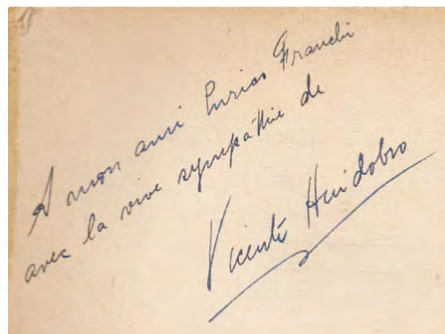 A mon ami Enrico Franchi
avec la vive sympathie de
Vicente Huidobro